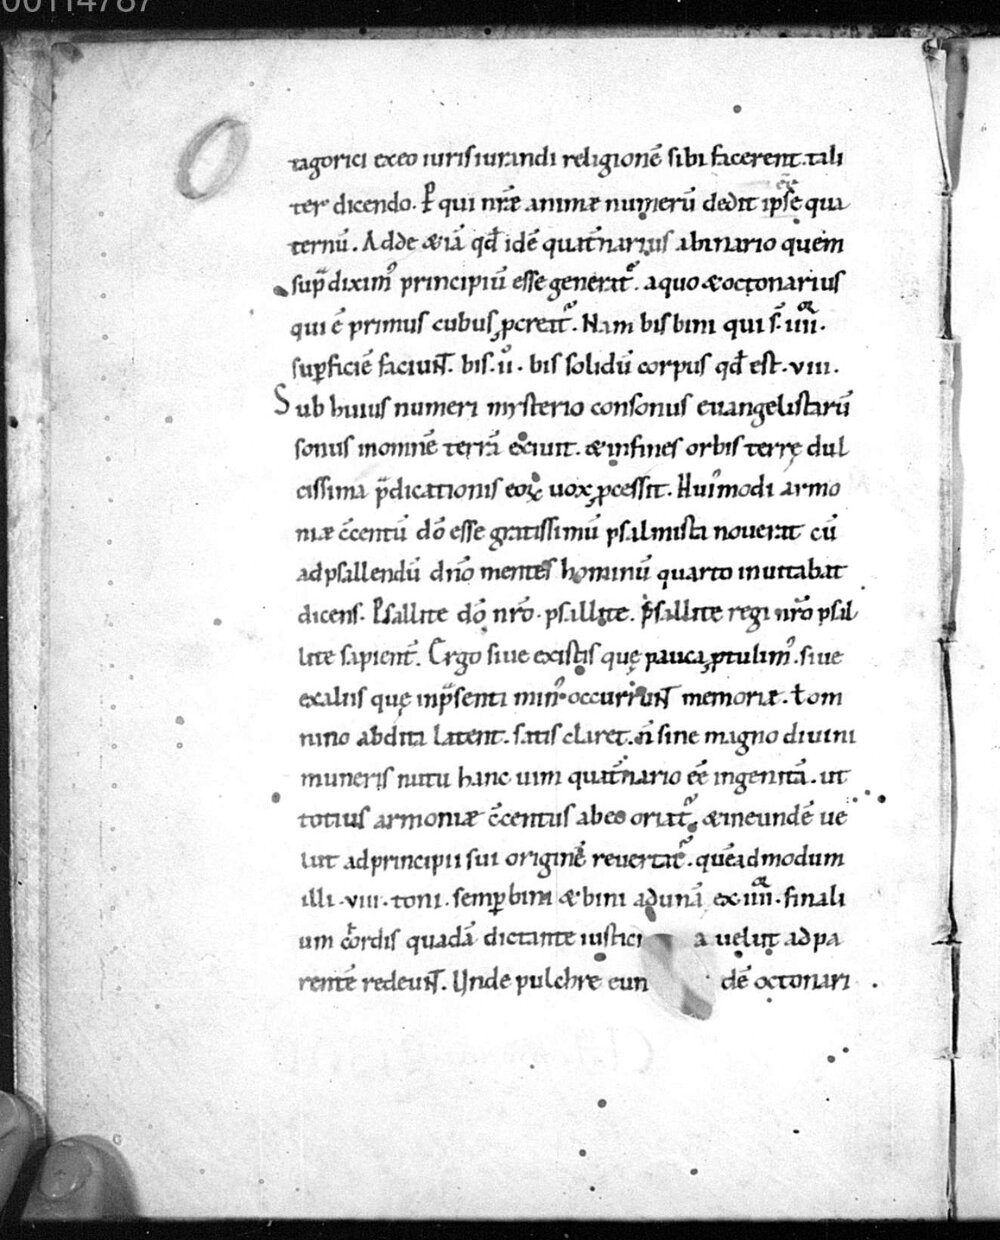 00114787
tagorici exeo iurisiurandi religionē sibi facerent. tali
ter dicendo. P̱ qui nr̄æ animæ numerū dedit ip̄se qua
ternū. Adde &iā qd̄ idē quat̄narius abinario quem
sup̄ diximꝰ principiū esse generat᷑. aquo &octonarius
qui ē primus cubus, ꝓcreat᷑. Nam bis bini qui s̄. iiii.
sup̱ficiē faciuNT. bis. ii. bis solidū corpus qd̄ est. viii.
Sub huius numeri mysterio consonus euangelistarū
sonus inomnē terrā exiuit. &infines orbis terrę dul
cissima p̄dicationis eoꝝ uox ꝓcessit. Huiꝰmodi armo
niæ c̄centū dō esse gratissimū psalmista nouerat cū
adpsallendū dn̄o mentes hominū quarto inuitabat
dicens. Psallite dō nr̄o. psallite. Psallite regi nr̄o psal
lite sapient̄. Ergo siue existis quę pauca ꝓtulimꝰ. siue
exaliis quę inp̄senti minꝰ occurruNT memoriæ. ł om
nino abdita latent. satis claret. n̄ sine magno diuini
muneris nutu hanc uim quat̄nario eē ingenitā. ut
totius armoniæ c̄centus abeo oriat᷑, &ineundē ue
lut adprincipii sui originē reuertat᷑. quēadmodum
illi. viii. toni. semp̱ bini &bini adunā ex. iiii. finali
um cordis quadā dictante iustici a uelut adpa
rentē redeuNT. Unde pulchre eun dē octonari